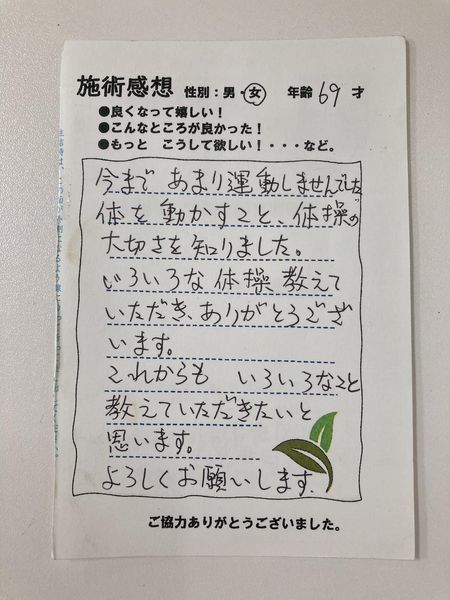 施術感想 性別：男・女 年齢 69 才
●良くなって嬉しい！
●こんなところが良かった！
●もっと こうして欲しい！・・・など。
今まで あまり運動しませんでした
体を動かすこと、体操の
大切さを知りました。
いろいろな体操教えて
いただき、ありがとうござ
います。
これからも いろいろなこと
教えていただきたいと
思います。
よろしくお願いします.
ご協力ありがとうございました。